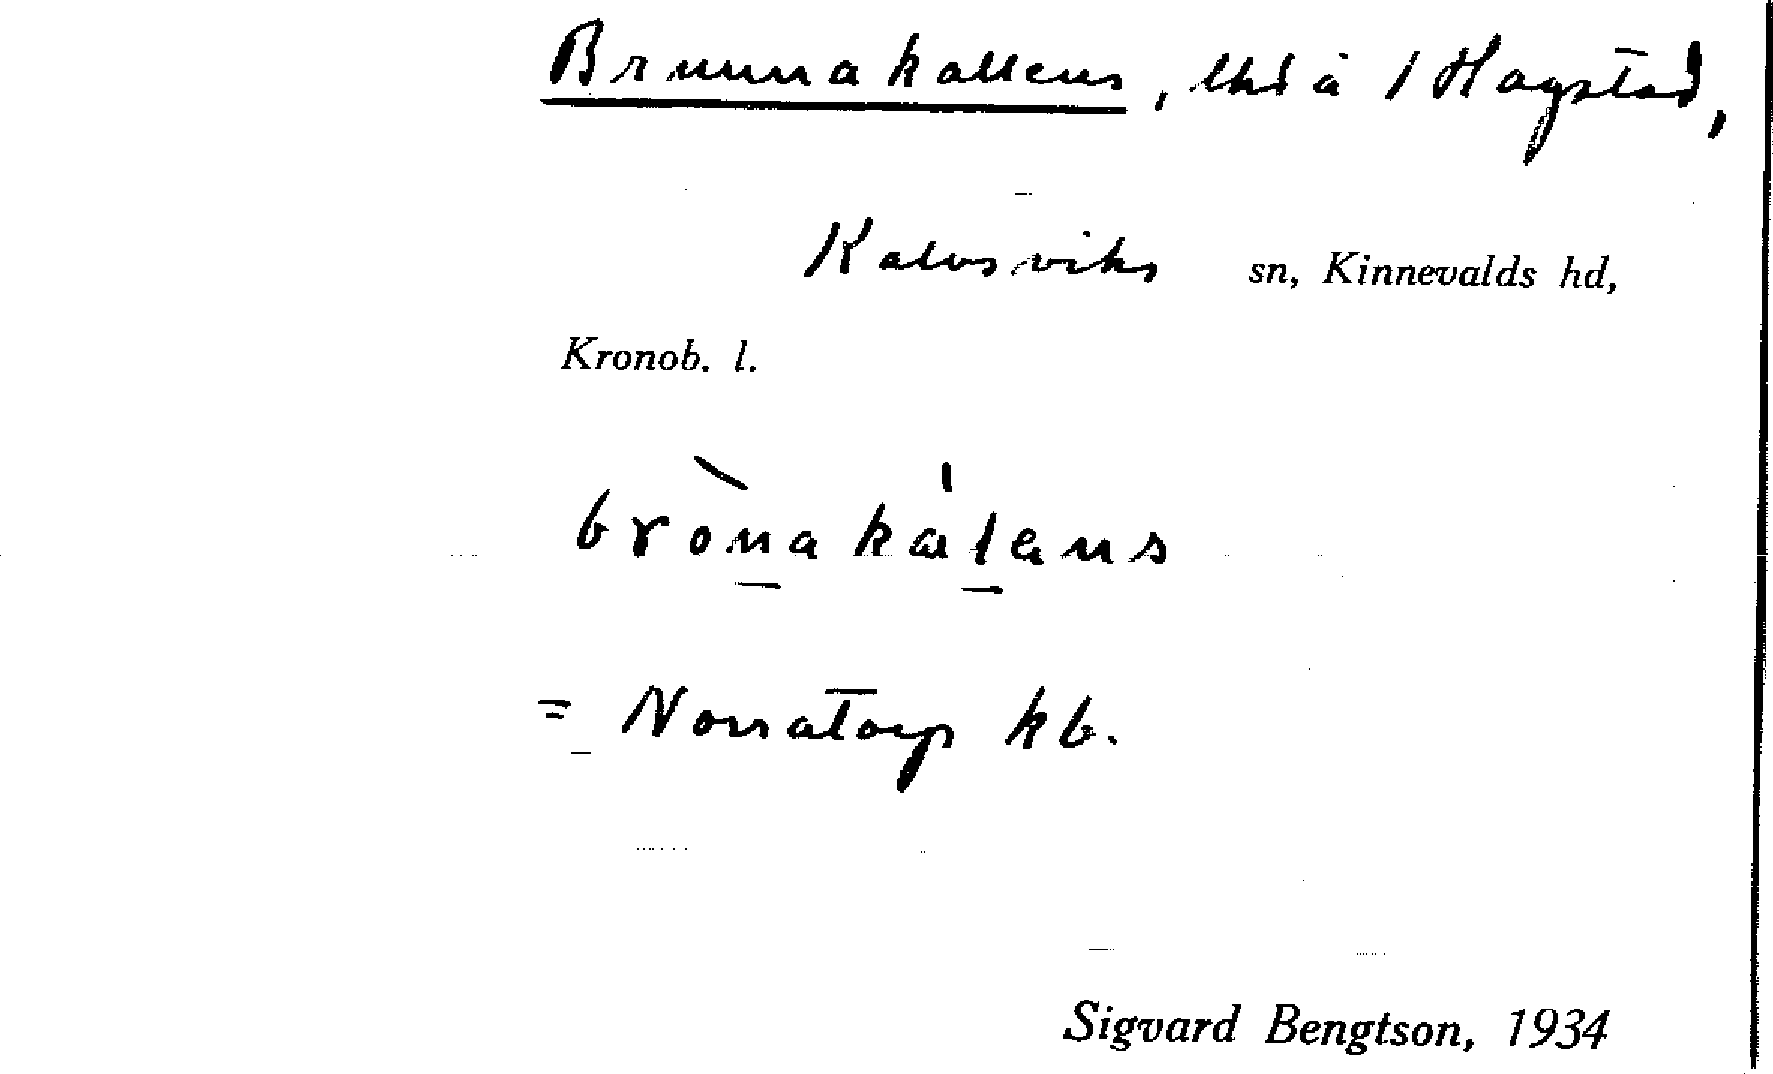 Brunnakallens, lhd å 1 Hagstad,
Kalvsviks sn, Kinnevalds hd,
Kronob. l.
brònakálans
= Norratorp kb.
Sigvard Bengtson, 1934